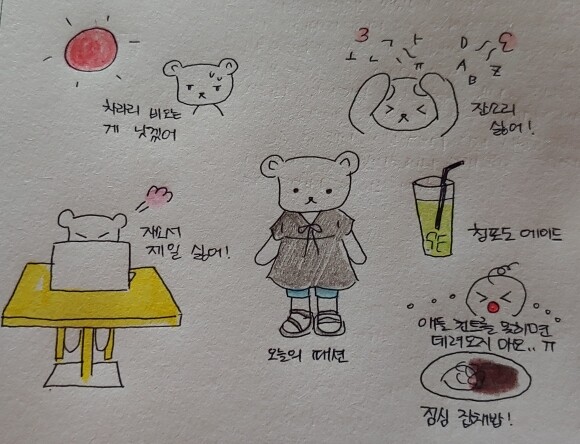 차라리 비오는
게 낫겠어
3 ㄱ ㅏ
ㅗ ㄴ ㅠ
D
A B Z
잔소리
싫어!
자소서
제일 싫어!
오늘의 패션
청포도 에이드
애들 컨트롤 못하면
데려오지 마요.. ㅠ
점심 잡채밥!